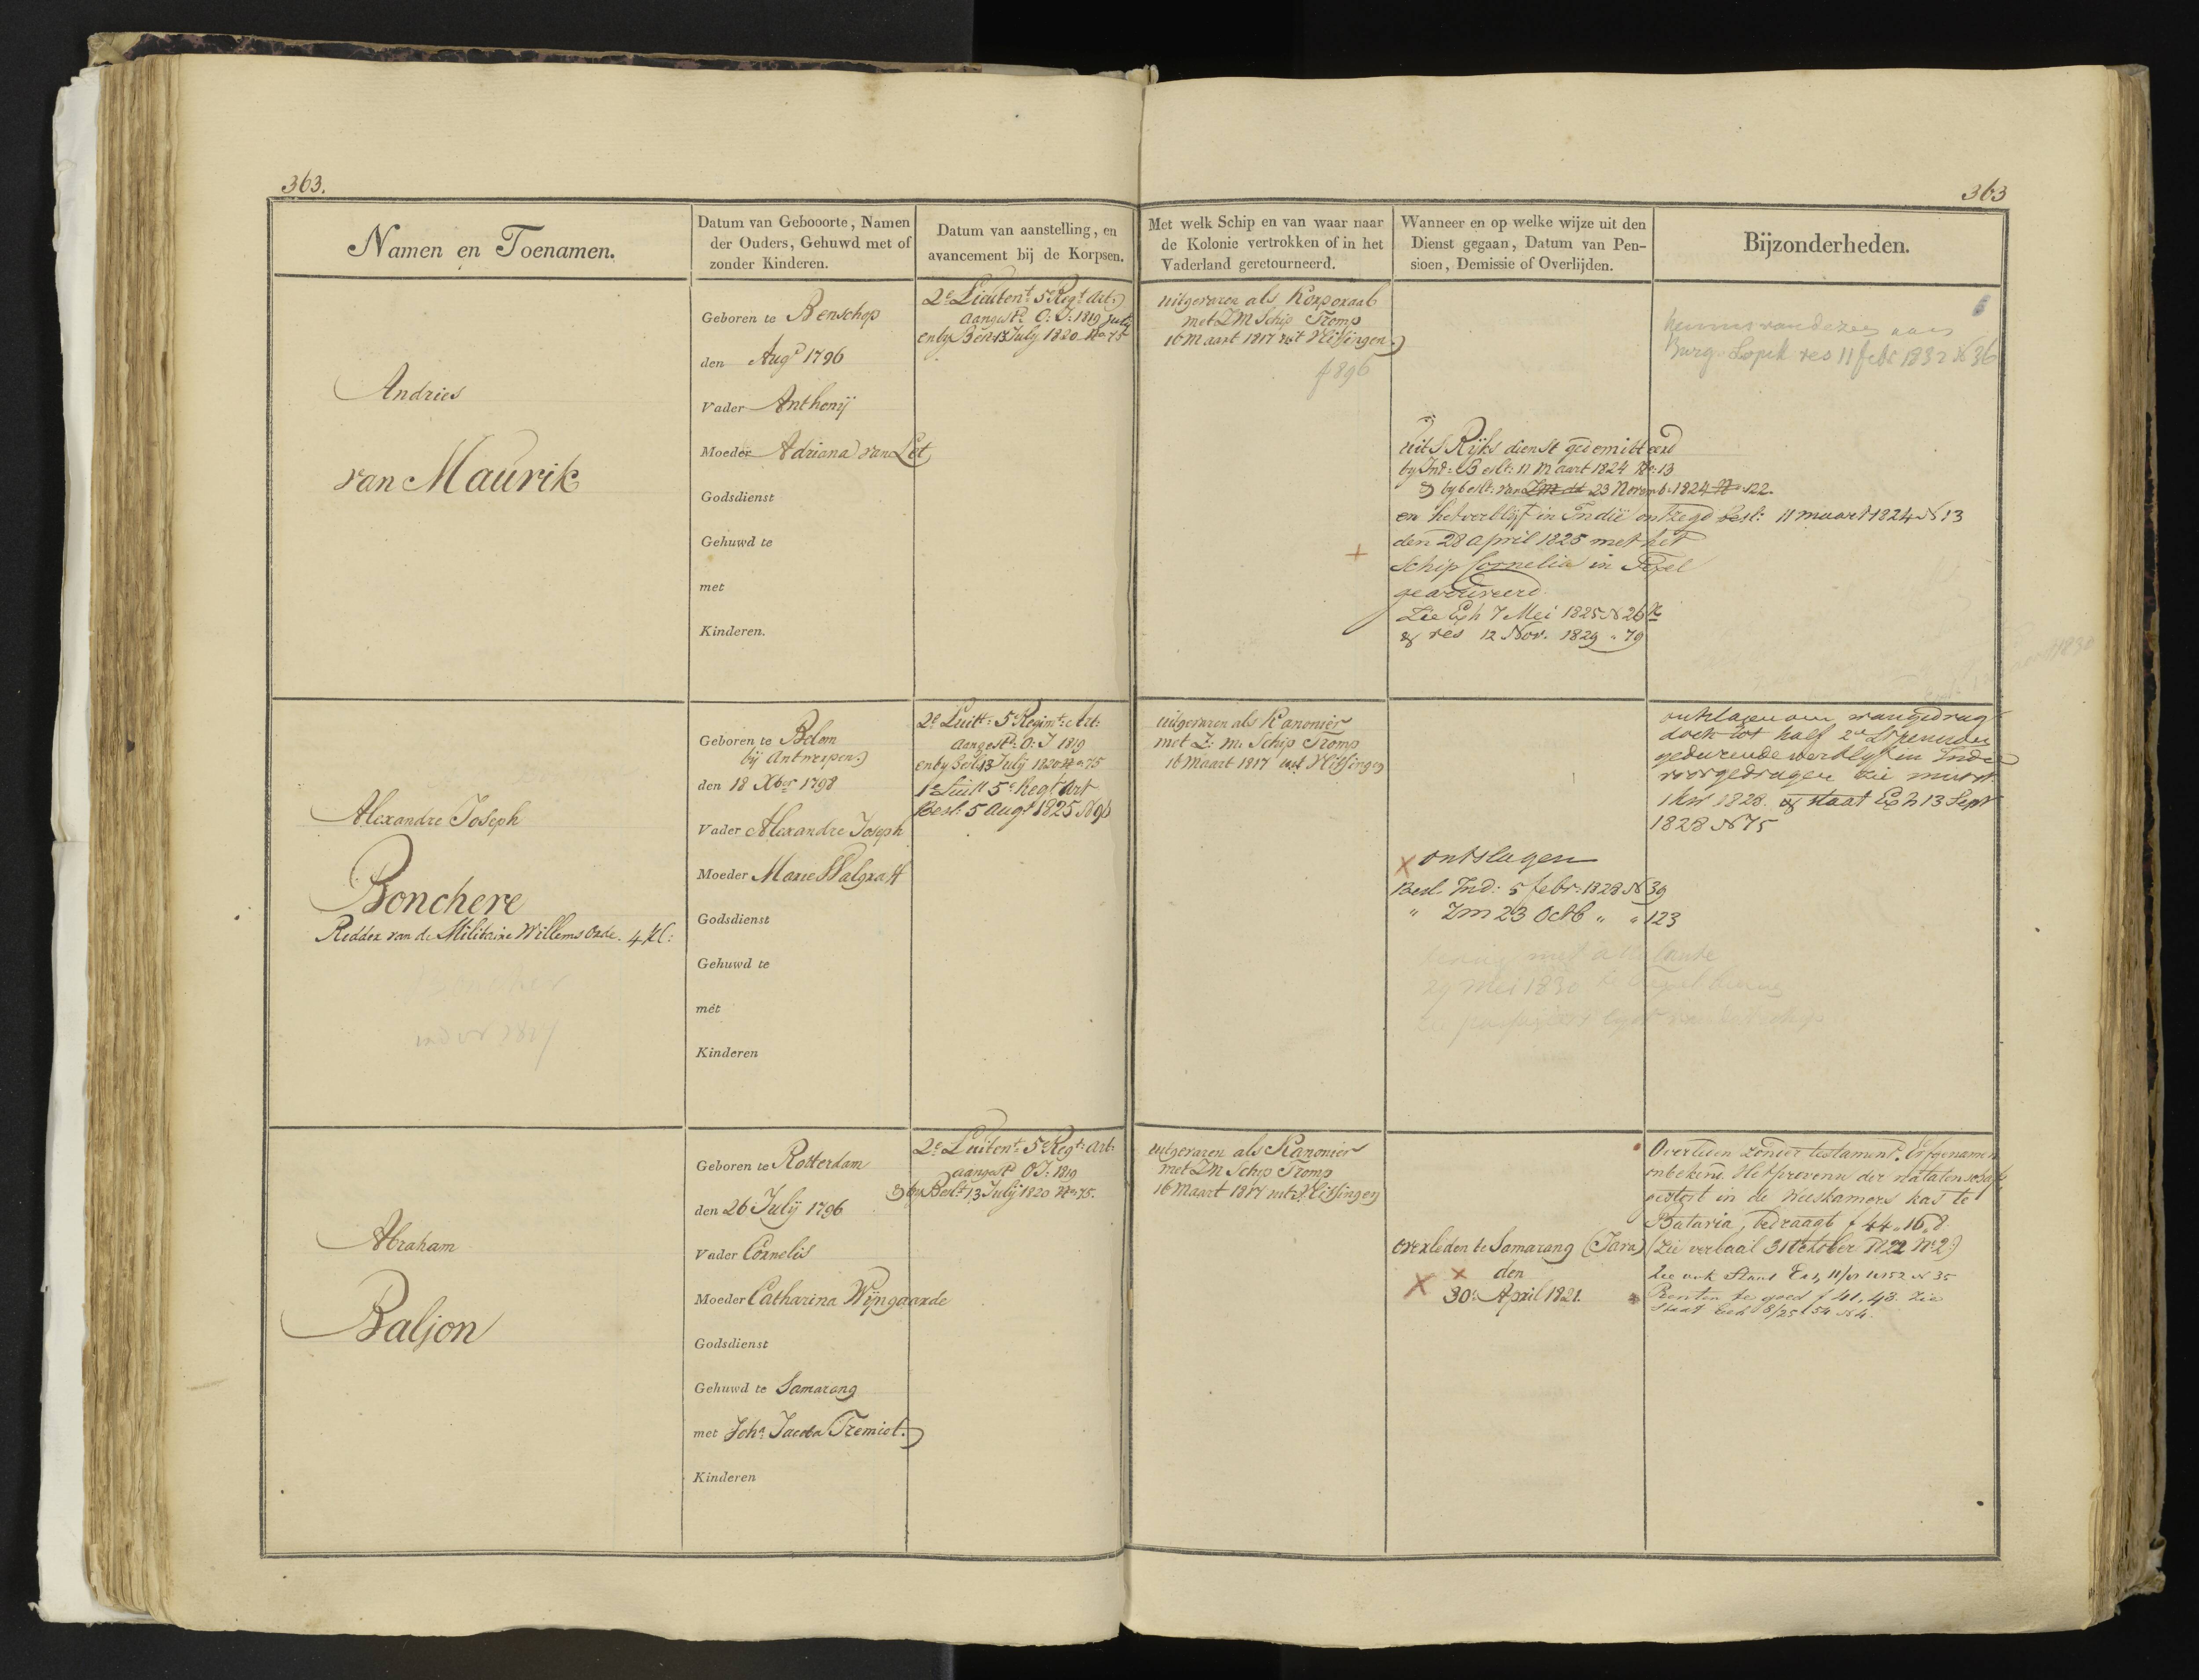 363.
363
Namen en Toenamen.
Datum van Gebooorte, Namen
der Ouders, Gehuwd met of
zonder Kinderen.
Datum van aanstelling, en
avancement bij de Korpsen.
Met welk Schip en van waar naar
de Kolonie vertrokken of in het
Vaderland geretourneerd.
Wanneer en op welke wijze uit den
Dienst gegaan, Datum van Pen-
sioen, Demissie of Overlijden.
Bijzonderheden.
Andries
van Maurik
Geboren te Benschop
den Augs 1796
Vader Anthonij
Moeder Adriana van Lot
Godsdienst
Gehuwd te
met
Kinderen.
2e Lieutent 5e Regt Art:
aangestd O: I: 1819 July
en by Besl 13 July 1820 No 75
uitgevaren als Korporaal
met ZM Schip Tromp
16 Maart 1817 uit Vlissingen
f 896
uit S Ryks dienst gedemitteerd
by Ind: Beslt: 11 Maart 1824 No: 13
& by beslt: van ZM dd 23 Novemb: 1824 No 122.
en het verblyf in Indië ontzegd besl: 11 maart 1824 N 13
den 28 April 1825 met het
Schip Cornelia in Texel
gearriveerd.
Zie Exh 7 Mei 1825 N 26
& res 12 Nov. 1829 " 79
van dezen aan
Burg. Lopik res 11 febr 1832 N 36
Alexandre Joseph
Bonchere
Ridder van de Militaire Willems Orde. 4 Kl:
Boncher
Geboren te Belom
bij Antwerpen
den 18 Xber 1798
Vader Alexandre Joseph
Moeder Marie Walgraff
Godsdienst
Gehuwd te
met
Kinderen
2e Luitt: 5e Regimt: Art:
aangestd: O: I 1819
en by Besl 13 July 1820 No 75
1e Luitt 5e Regt Art
Besl: 5 Augt 1825 N 9
uitgevaren als Kanonier
met Z: M. Schip Tromp
16 Maart 1817 uit Vlissingen
ontslagen
Besl. Ind: 5 febr: 1828 N 39
" ZM 23 Octb " " 123
terug met
29 Mei 1830
ontslagen om wangedrag
doch tot half 2e Lt pensioen
gedurende verblyf in Indie
voorgedragen zie
1828. & staat Exh 13 Sept
1828 N 75
Abraham
Baljon
Geboren te Rotterdam
den 26 July 1796
Vader Cornelis
Moeder Catharina Wijngaarde
Godsdienst
Gehuwd te Samarang
met Joha Jacoba Tremiot.
Kinderen
2e Luitent 5e Regt: Art:
aangestd O I: 1819
& by Beslt 13 July 1820 No 75.
uitgevaren als Kanonier
met ZM Schip Tromp
16 Maart 1817 uit Vlissingen
overleden te Samarang (Java)
den
30 April 1821.
Overleden zonder testament. Erfgenamen
onbekend. Het provenu der nalatenschap
gestort in de Weeskamers kas te
Batavia, bedraagt f 44.16.8.
(Zie verbaal 31 October 1822 No 2)
Zie ook Staat Exh
Renten te goed f 41,43. Zie
Staat Exh 8/25 54 N 4.